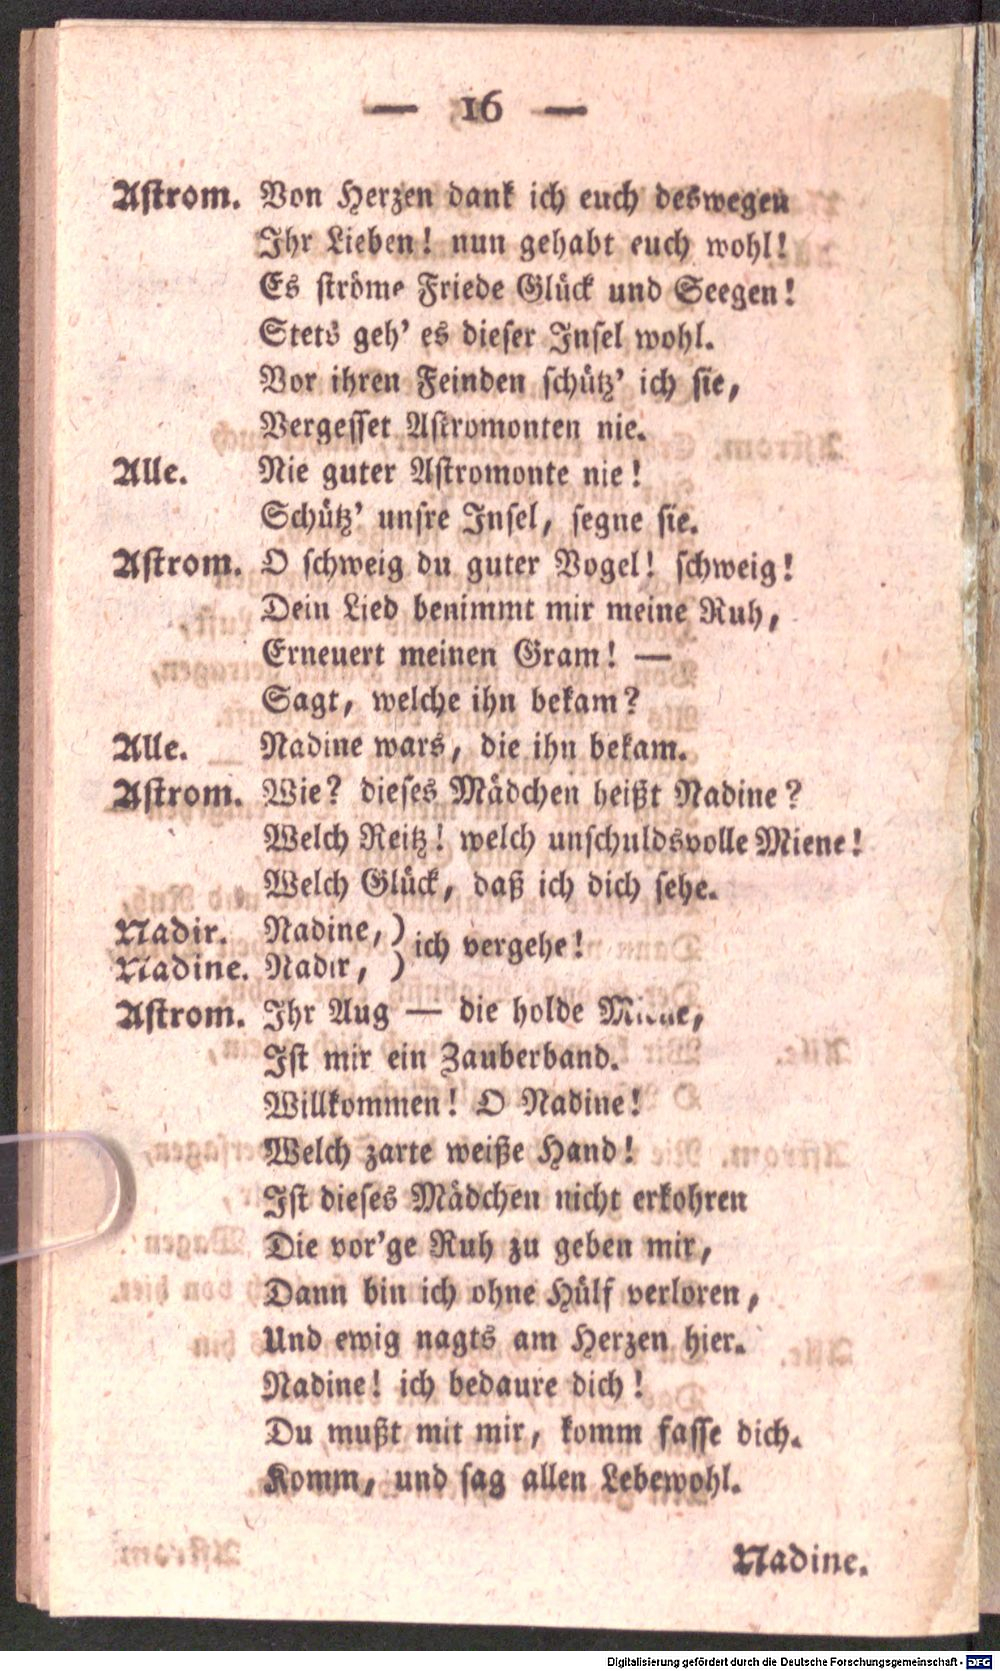 — 16 —
Astrom. Von Herzen dank ich euch deswegen
Ihr Lieben! nun gehabt euch wohl!
Es ströme Friede Glück und Seegen!
Stets geh' es dieser Insel wohl.
Vor ihren Feinden schütz' ich sie,
Vergesset Astromonten nie.
Alle. Nie guter Astromonte nie!
Schütz' unsre Insel, segne sie.
Astrom. O schweig du guter Vogel! schweig!
Dein Lied benimmt mir meine Ruh,
Erneuert meinen Gram! —
Sagt, welche ihn bekam?
Alle. Nadine wars, die ihn bekam.
Astrom. Wie? dieses Mädchen heißt Nadine?
Welch Reitz! welch unschuldsvolle Miene!
Welch Glück, daß ich dich sehe.
Nadir. Nadine, )
ich vergehe!
Nadine. Nadir, )
Astrom. Ihr Aug — die holde Miene,
Ist mir ein Zauberband.
Willkommen! O Nadine!
Welch zarte weiße Hand!
Ist dieses Mädchen nicht erkohren
Die vor'ge Ruh zu geben mir,
Dann bin ich ohne Hülf verloren,
Und ewig nagts am Herzen hier.
Nadine! ich bedaure dich!
Du mußt mit mir, komm fasse dich.
Komm, und sag allen Lebewohl.
Nadine.
Digitalisierung gefördert durch die Deutsche Forschungsgemeinschaft - DFG